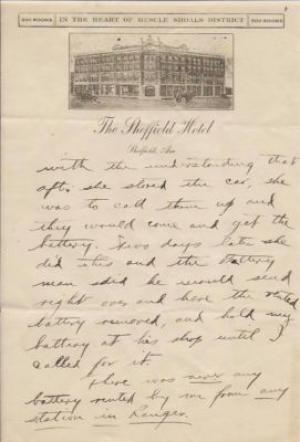 200 ROOMS
IN THE HEART OF MUSCLE SHOALS DISTRICT
200 ROOMS
The Sheffield Hotel
Sheffield, Ala.
with the understanding that
aft. she stored the car, she
was to call them up and
they would come and get the
battery. Two days late she
did this and the battery
man said he would send
right over and have the rented
battery removed, and hold my
battery at his shop until I
called for it.
There was never any
battery rented by me from any
station in Ranger.